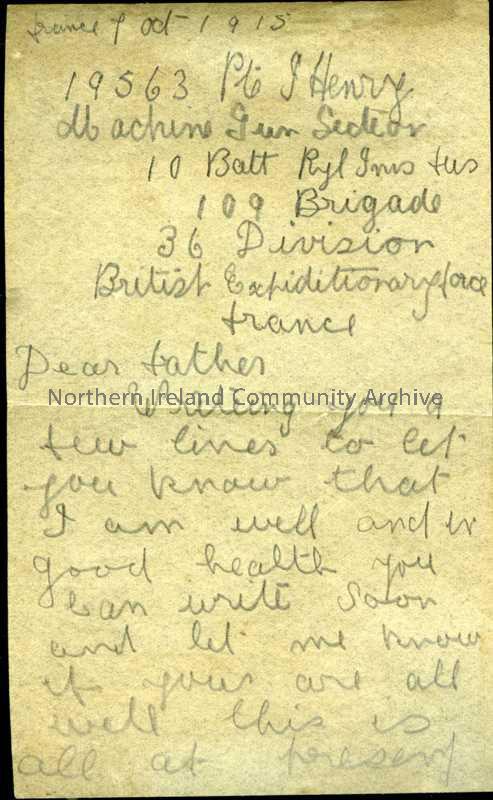 france 7 oct 1915
19563 Pte J Henry
Machine Gun Section
10 Batt Ryl Inns fus
109 Brigade
36 Division
British Expiditionary force
france
Dear father
Northern Ireland Community Archive
Writing you a
few lines to let
you know that
I am well and in
good health you
can write soon
and let me know
if yous are all
well this is
all at present